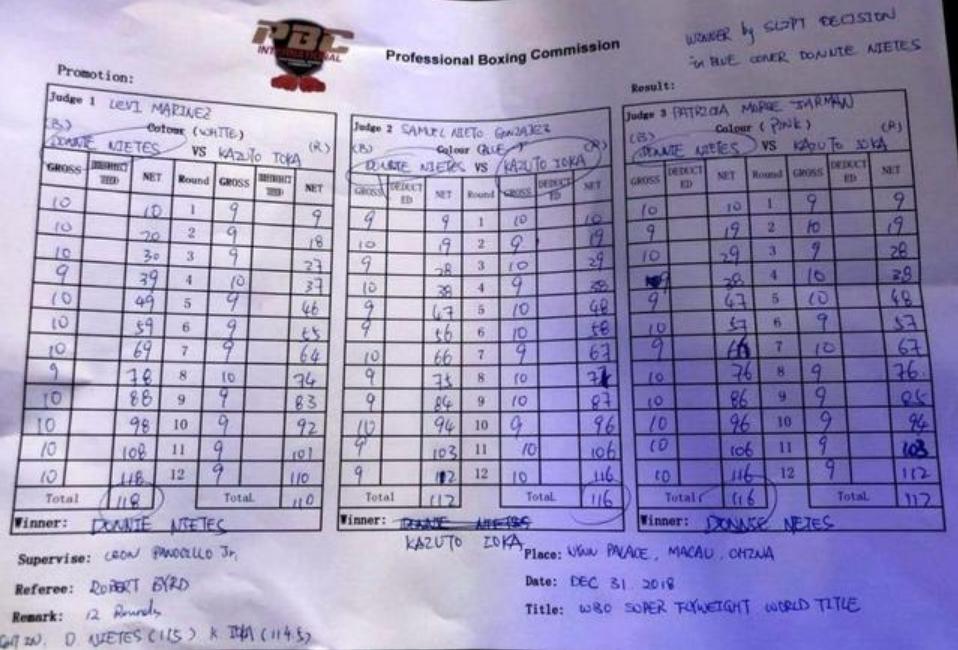 PBC
INTERNATIONAL
Professional Boxing Commission
WINNER by SLIPT DECISION
in BLUE CONER DONNIE NIETES
Promotion:
Result:
Judge 1 LEVI MARINEZ
(B) Colour (WHITE) (R)
DONNIE NIETES VS KAZUTO IOKA
GROSS NET Round GROSS NET
10 10 1 9 9
10 20 2 9 18
10 30 3 9 27
9 39 4 10 37
10 49 5 9 46
10 59 6 9 55
10 69 7 9 64
9 78 8 10 74
10 88 9 9 83
10 98 10 9 92
10 108 11 9 101
10 118 12 9 110
Total 118 Total 110
Winner: DONNIE NIETES
Judge 2 SAMUEL NIETO GONZALEZ
(B) Colour (BLUE) (R)
DONNIE NIETES VS KAZUTO IOKA
GROSS DEDUCTED NET Round GROSS DEDUCTED NET
9 9 1 10 10
10 19 2 9 19
9 28 3 10 29
10 38 4 9 38
9 47 5 10 48
9 56 6 10 58
10 66 7 9 67
9 75 8 10 77
9 84 9 10 87
10 94 10 9 96
9 103 11 10 106
9 112 12 10 116
Total 112 Total 116
Winner: DONNIE NIETES
KAZUTO IOKA
Judge 3 PATRICIA MORSE JARMAN
(B) Colour (PINK) (R)
DONNIE NIETES VS KAZUTO IOKA
GROSS DEDUCTED NET Round GROSS DEDUCTED NET
10 10 1 9 9
9 19 2 10 19
10 29 3 9 28
9 38 4 10 38
9 47 5 10 48
10 57 6 9 57
9 66 7 10 67
10 76 8 9 76
10 86 9 9 85
10 96 10 9 94
10 106 11 9 103
10 116 12 9 112
Total 116 Total 112
Winner: DONNIE NETES
Supervise: LEON PANONCILLO Jr.
Place: WYNN PALACE, MACAU, CHINA
Referee: ROBERT BYRD
Date: DEC 31. 2018
Remark: 12 Rounds
Title: WBO SUPER FLYWEIGHT WORLD TITLE
D. NIETES (115) K. IOKA (114.5)